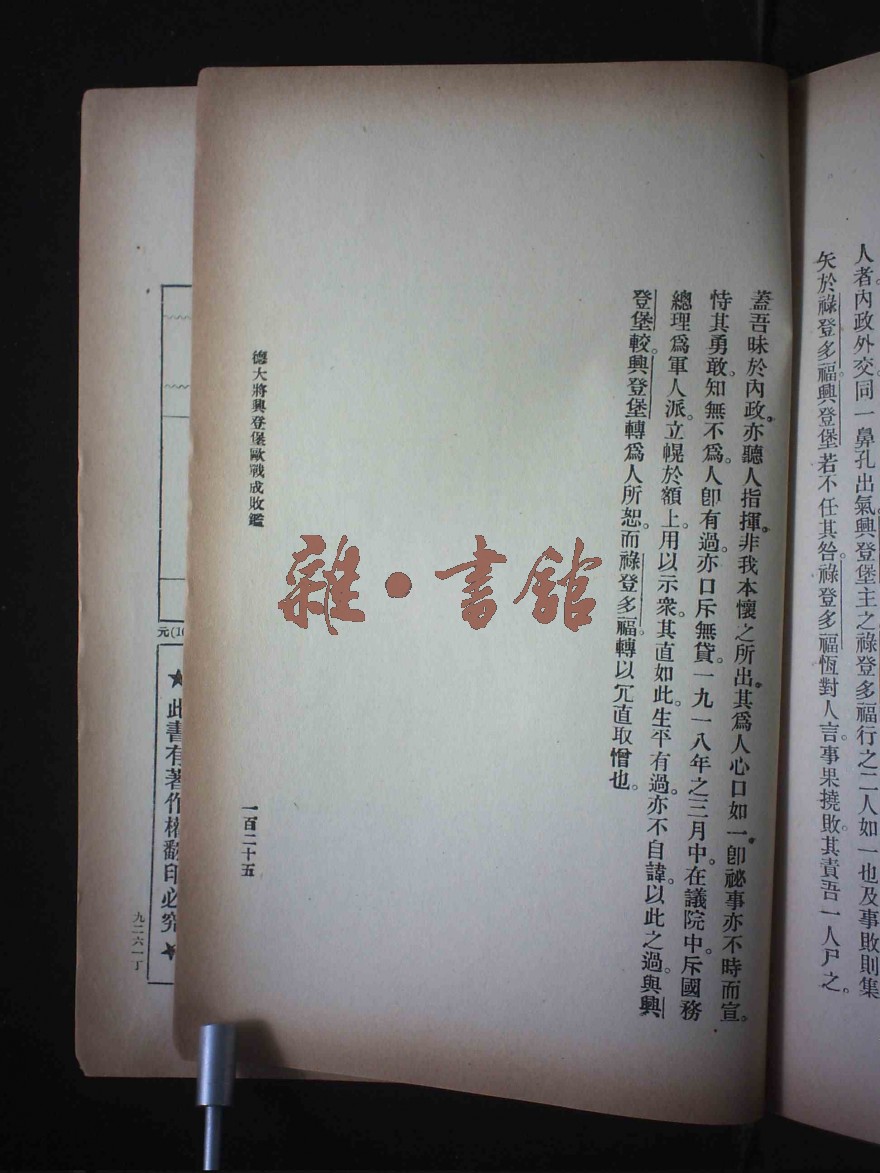 人者。內政外交。同一鼻孔出氣。興登堡主之。祿登多福行之。二人如一也。及事敗則集
矢於祿登多福。興登堡若不任其咎。祿登多福恆對人言。事果撓敗。其責吾一人尸之。
蓋吾昧於內政。亦聽人指揮。非我本懷之所出。其爲人心口如一。卽祕事亦不時而宣。
恃其勇敢。知無不爲。人卽有過。亦口斥無貸。一九一八年之三月中。在議院中。斥國務
總理爲軍人派。立幌於額上。用以示衆。其直如此。生平有過。亦不自諱。以此之過。與興
登堡較。興登堡轉爲人所恕。而祿登多福。轉以冗直取憎也。
德大將興登堡歐戰成敗鑑
一百二十五
雜·書館
元(1
★此書有著作權翻印必究★
九二六一丁